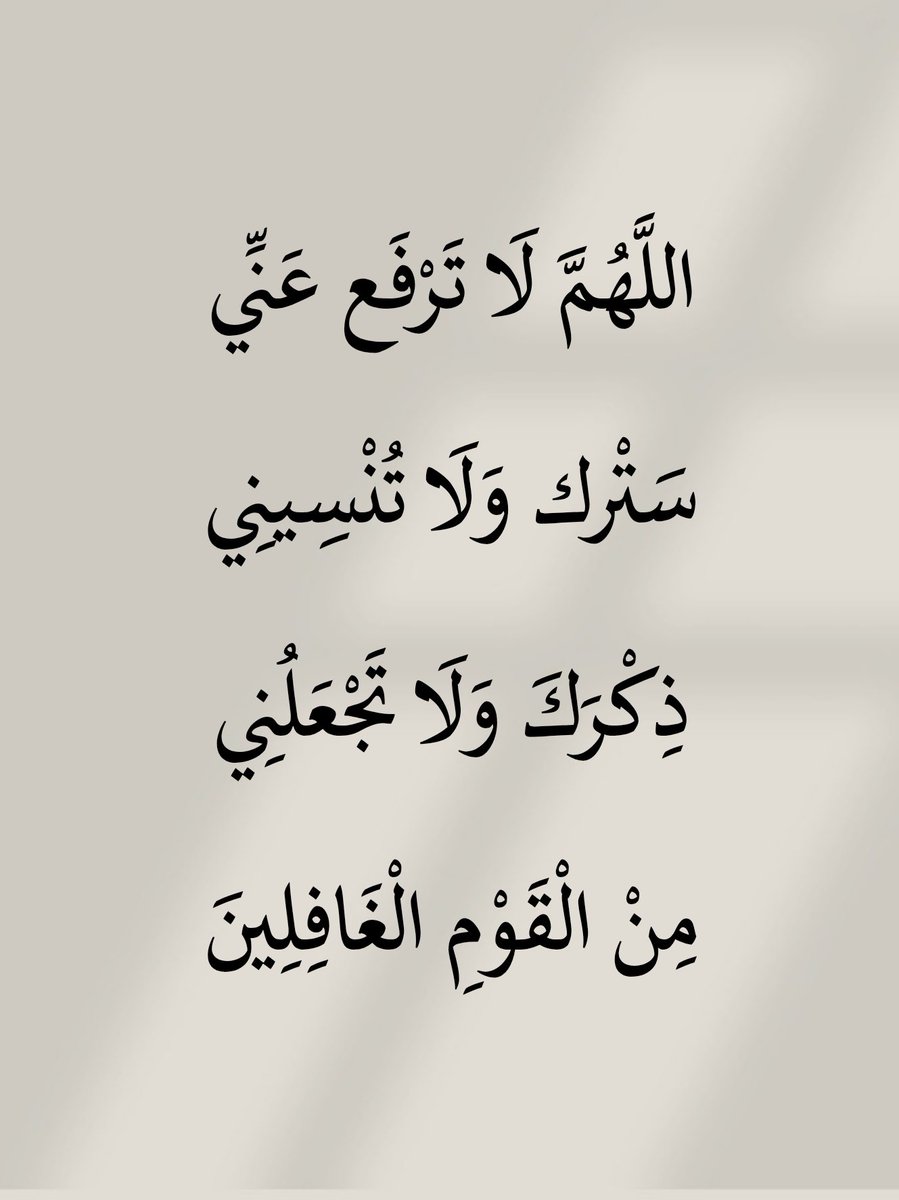 اللَّهُمَّ لَا تَرْفَع عَنِّي
سَتْرك وَلَا تُنْسِينِي
ذِكْرَكَ وَلَا تَجْعَلُنِي
مِنْ الْقَوْمِ الْغَافِلِينَ